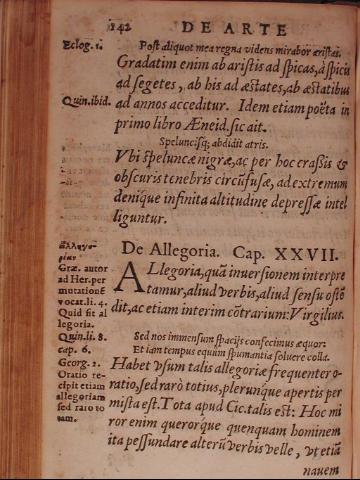 142 DE ARTE
Eclog. 1.
Post aliquot mea regna videns mirabor aristas.
Gradatim enim ab aristis ad spicas, à spicis
ad segetes, ab his ad æstates, ab æstatibus
Quin. ibid.
ad annos acceditur. Idem etiam poëta in
primo libro Æneid. sic ait.
Speluncisq; abdidit atris.
Vbi speluncæ nigræ, ac per hoc crassis &
obscuris tenebris circũfusæ, ad extremum
denique infinita altitudine depressæ intel
liguntur.
De Allegoria. Cap. XXVII.
Græ. autor
ad Her. per
mutationẽ
vocat. li. 4.
Quid sit al
legoria.
Quin. li. 8.
cap. 6.
Georg. 2.
Oratio re-
cipit etiam
allegoriam
sed raro to
tam.
ALlegoria, quã inuersionem interpre
tamur, aliud verbis, aliud sensu ostẽ
dit, ac etiam interim cõtrarium: Virgilius.
Sed nos immensum spacijs confecimus æquor:
Et iam tempus equûm spumantia soluere colla.
Habet vsum talis allegoriæ frequenter o-
ratio, sed rarò totius, plerunque apertis per
mista est. Tota apud Cic. talis est: Hoc mi
ror enim querorq́ue quenquam hominem
ita pessundare alterũ verbis velle, vt etiã
nauem